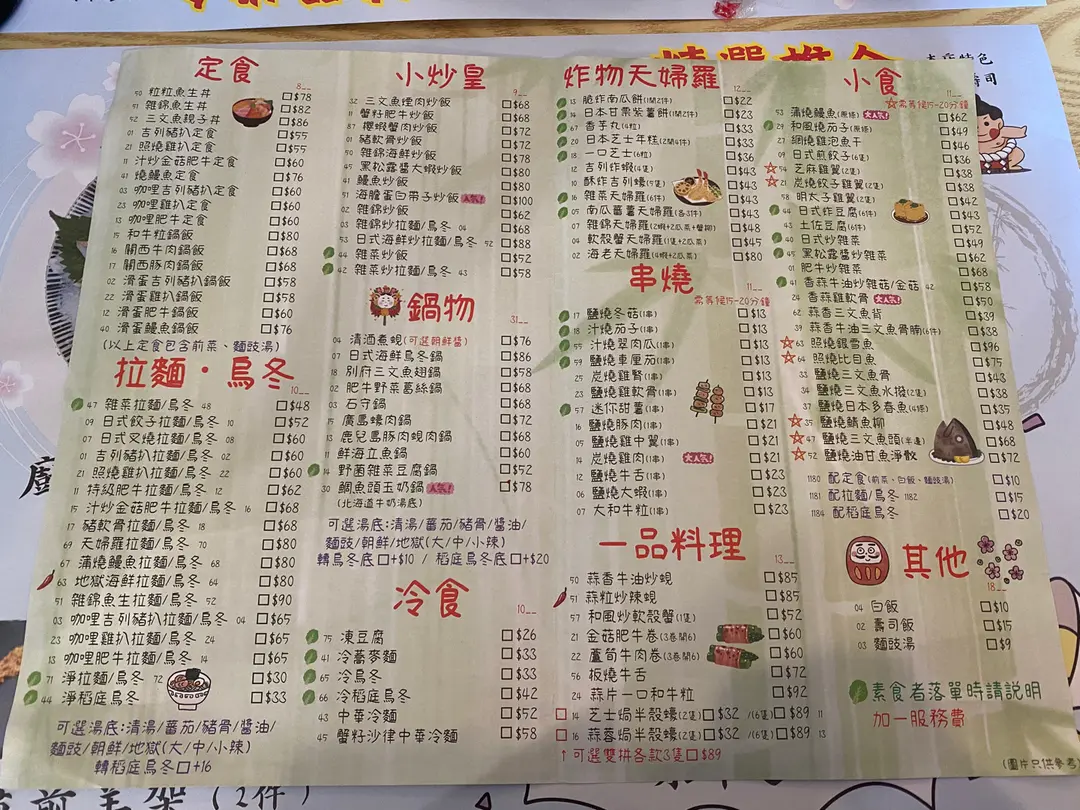 定食
8__
50 粒粒魚生丼 □$78
51 雜錦魚生丼 □$82
52 三文魚親子丼 □$86
01 吉列豬扒定食 □$55
21 照燒雞扒定食 □$55
11 汁炒金菇肥牛定食 □$60
41 燒鰻魚定食 □$76
03 咖哩吉列豬扒定食 □$60
23 咖哩雞扒定食 □$60
13 咖哩肥牛定食 □$60
15 和牛粒鍋飯 □$80
16 關西牛肉鍋飯 □$68
17 關西豚肉鍋飯 □$68
02 滑蛋吉列豬扒鍋飯 □$58
22 滑蛋雞扒鍋飯 □$58
12 滑蛋肥牛鍋飯 □$60
40 滑蛋鰻魚鍋飯 □$76
(以上定食包含前菜、麵豉湯)
拉麵・烏冬
10__
47 雜菜拉麵/烏冬 48 □$48
09 日式餃子拉麵/烏冬 10 □$52
07 日式叉燒拉麵/烏冬 08 □$60
01 吉列豬扒拉麵/烏冬 02 □$60
21 照燒雞扒拉麵/烏冬 22 □$60
11 特級肥牛拉麵/烏冬 12 □$62
15 汁炒金菇肥牛拉麵/烏冬 16 □$68
17 豬軟骨拉麵/烏冬 18 □$68
69 天婦羅拉麵/烏冬 70 □$80
67 蒲燒鰻魚拉麵/烏冬 68 □$80
63 地獄海鮮拉麵/烏冬 64 □$80
51 雜錦魚生拉麵/烏冬 52 □$90
03 咖哩吉列豬扒拉麵/烏冬 04 □$65
23 咖哩雞扒拉麵/烏冬 24 □$65
13 咖哩肥牛拉麵/烏冬 14 □$65
71 淨拉麵/烏冬 72 □$30
44 淨稻庭烏冬 □$33
可選湯底:清湯/蕃茄/豬骨/醬油/
麵豉/朝鮮/地獄(大/中/小辣)
轉稻庭烏冬□+16
小炒皇
9__
32 三文魚煙肉炒飯 □$68
11 蟹籽肥牛炒飯 □$68
87 櫻蝦蟹肉炒飯 □$68
01 豬軟骨炒飯 □$72
50 雜錦海鮮炒飯 □$78
45 黑松露醬大蝦炒飯 □$80
41 鰻魚炒飯 □$80
51 海膽蛋白帶子炒飯 人氣! □$100
02 雜錦炒飯 □$62
03 雜錦炒拉麵/烏冬 04 □$68
53 日式海鮮炒拉麵/烏冬 52 □$88
44 雜菜炒飯 □$52
42 雜菜炒拉麵/烏冬 43 □$58
鍋物
31__
04 清酒煮蜆(可選朝鮮醬) □$76
07 日式海鮮烏冬鍋 □$86
18 別府三文魚翅鍋 □$58
02 肥牛野菜葛絲鍋 □$68
03 石守鍋 □$68
15 廣島蠔肉鍋 □$72
13 鹿兒島豚肉蜆肉鍋 □$68
11 鮮海立魚鍋 □$60
14 野菌雜菜豆腐鍋 □$52
30 鯛魚頭玉奶鍋 人氣! □$78
(北海道牛奶湯底)
可選湯底:清湯/蕃茄/豬骨/醬油/
麵豉/朝鮮/地獄(大/中/小辣)
轉烏冬底□+$10 / 稻庭烏冬底□+$20
冷食
10__
75 凍豆腐 □$26
41 冷蕎麥麵 □$33
65 冷烏冬 □$33
66 冷稻庭烏冬 □$42
43 中華冷麵 □$52
45 蟹籽沙律中華冷麵 □$58
炸物天婦羅
12__
13 脆炸南瓜餅(1開2件) □$22
14 日本甘栗紫薯餅(1開2件) □$23
67 香芋丸(4粒) □$33
20 日本芝士年糕(2開4件) □$33
18 一口芝士(6粒) □$36
12 吉列炸蝦(4隻) □$43
10 酥炸吉列蠔(5隻) □$43
16 雜菜天婦羅(6件) □$43
05 南瓜蕃薯天婦羅(各3件) □$43
07 雜錦天婦羅(2蝦+2瓜菜+蟹柳) □$48
04 軟殼蟹天婦羅(1隻+2瓜菜) □$45
02 海老天婦羅(4蝦+2瓜菜) □$80
串燒
11__
需等候15-20分鐘
17 鹽燒冬菇(1串) □$13
18 汁燒茄子(1串) □$13
55 汁燒翠肉瓜(1串) □$13
59 鹽燒車厘茄(1串) □$13
25 炭燒雞腎(1串) □$13
23 鹽燒雞軟骨(1串) □$13
57 迷你甜薯(1串) □$17
16 鹽燒豚肉(1串) □$21
05 鹽燒雞中翼(1串) □$21
14 炭燒雞肉(1串) 大人氣! □$21
12 鹽燒牛舌(1串) □$23
06 鹽燒大蝦(1串) □$23
07 大和牛粒(1串) □$23
一品料理
13__
50 蒜香牛油炒蜆 □$85
51 蒜粒炒辣蜆 □$85
57 和風炒軟殼蟹(1隻) □$52
21 金菇肥牛卷(3卷開6) □$60
22 蘆筍牛肉卷(3卷開6) □$60
56 板燒牛舌 □$72
24 蒜片一口和牛粒 □$92
□ 14 芝士焗半殼蠔(2隻)□$32 /(6隻)□$89 11
□ 16 蒜蓉焗半殼蠔(2隻)□$32 /(6隻)□$89 13
↑可選雙拼各款3隻□$89
小食
11__
☆需等候15-20分鐘
53 蒲燒鰻魚(原條) 大人氣! □$62
29 和風燒茄子(原條) □$49
27 網燒雞泡魚干 □$46
09 日式煎餃子(6隻) □$36
54 芝麻雞翼(2隻) □$38
21 炭燒餃子雞翼(2隻) □$38
58 明太子雞翼(2隻) □$42
44 日式炸豆腐(6件) □$43
43 土佐豆腐(6件) □$52
40 日式炒雜菜 □$49
45 黑松露醬炒雜菜 □$62
01 肥牛炒雜菜 □$68
41 香蒜牛油炒雜菇/金菇 42 □$58
24 香蒜雞軟骨 大人氣! □$50
62 蒜香三文魚背 □$39
39 蒜香牛油三文魚骨腩(6件) □$38
63 照燒銀雪魚 □$96
64 照燒比目魚 □$75
33 鹽燒三文魚骨 □$43
34 鹽燒三文魚水撥(2隻) □$38
37 鹽燒日本多春魚(4條) □$35
35 鹽燒鯖魚柳 □$48
47 鹽燒三文魚頭(半邊) □$68
52 鹽燒油甘魚淨散 □$72
1180 配定食(前菜、白飯、麵豉湯) □$10
1181 配拉麵/烏冬 1182 □$15
1184 配稻庭烏冬 □$20
其他
18__
04 白飯 □$10
02 壽司飯 □$15
03 麵豉湯 □$9
素食者落單時請説明
加一服務費
(圖片只供參考)
(2件)